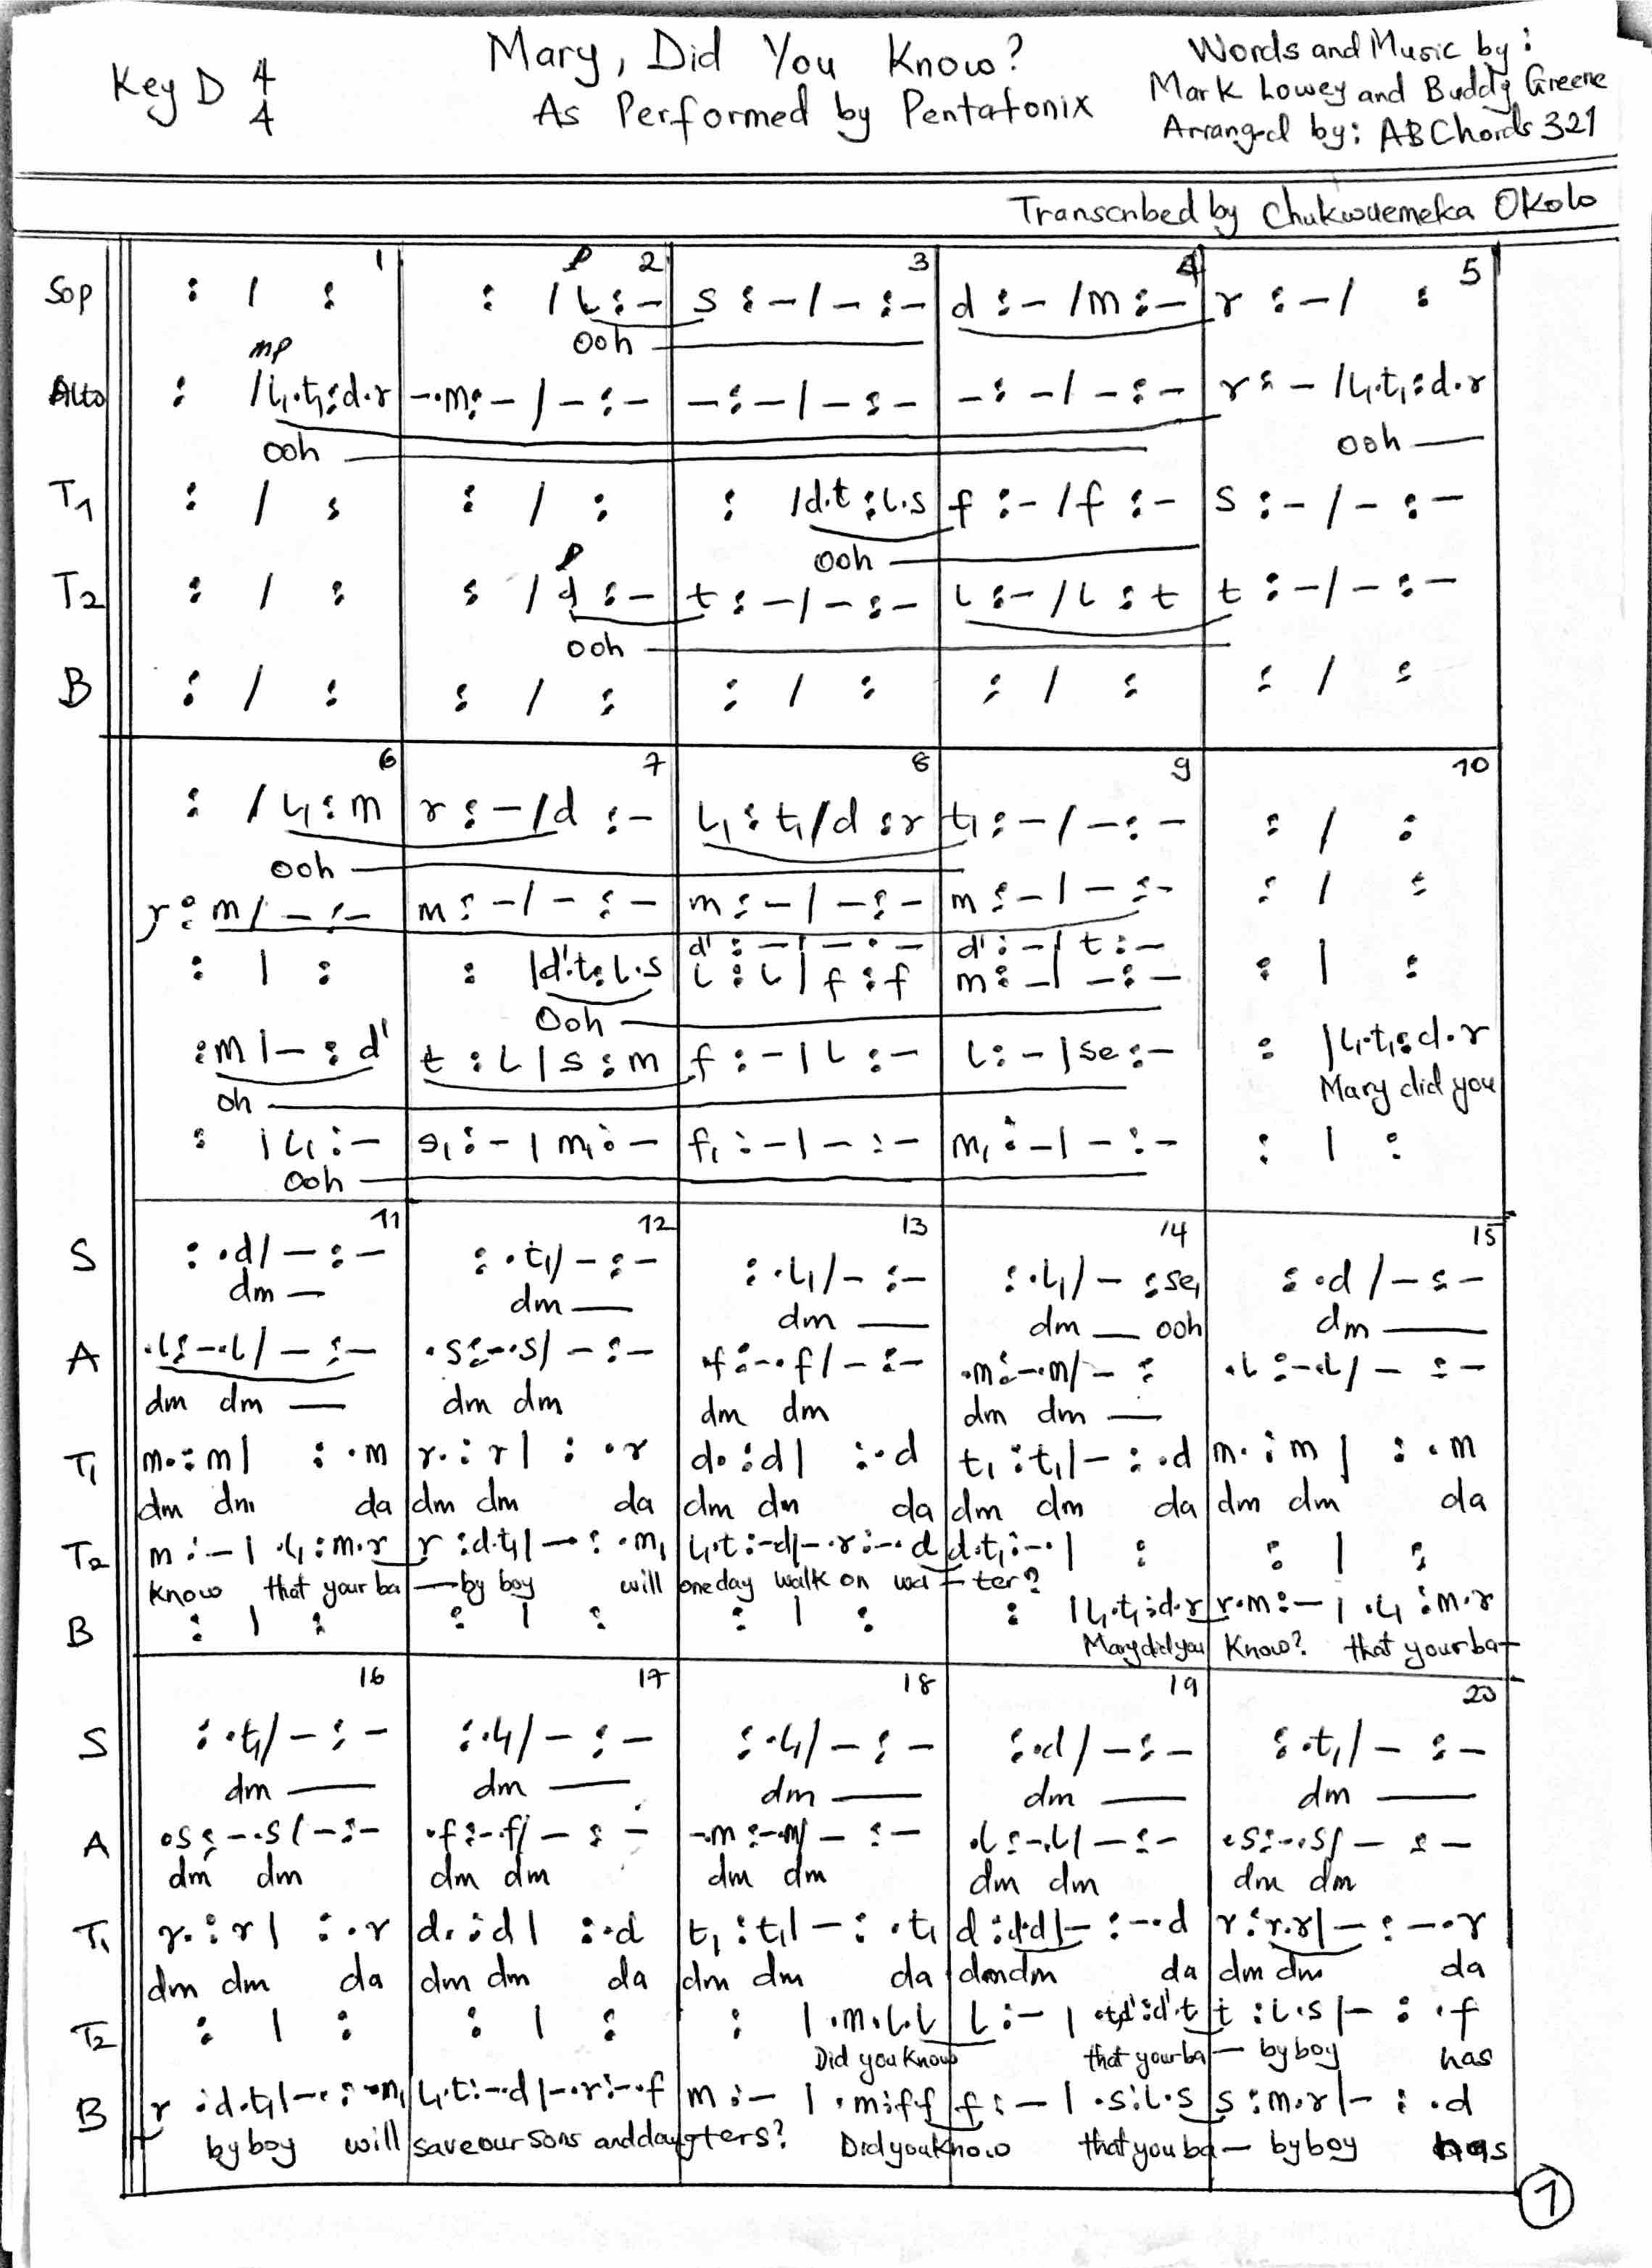 Key D 4/4
Mary, Did You Know?
As Performed by Pentatonix
Words and Music by:
Mark Lowey and Buddy Greene
Arranged by: ABChords 321
Transcribed by Chukwuemeka Okolo
1 2 3 4 5
Sop : / : : / l : – s : – / – : – d : – / m : – r : – / :
p
Ooh
mp
Alto : / l₁.t₁ : d.r –.m : – / – : – – : – / – : – – : – / – : – r : – / l₁.t₁ : d.r
ooh ooh
T1 : / : : / : : / d.t : l.s f : – / f : – s : – / – : –
ooh
p
T2 : / : : / d : – t : – / – : – l : – / l : t t : – / – : –
ooh
B : / : : / : : / : : / : : / :
6 7 8 9 10
: / l₁ : m r : – / d : – l₁ : t₁ / d : r t₁ : – / – : – : / :
ooh
r : m / – : – m : – / – : – m : – / – : – m : – / – : – : / :
d' : – / – : – d' : – / t : –
: | : : | d'.t : l.s l : l | f : f m : – | – : – : | :
Ooh
: m | – : d' t : l | s : m f : – | l : – l : – | se : – : | l₁.t₁ : d.r
oh Mary did you
: | l₁ : – s₁ : – | m₁ : – f₁ : – | – : – m₁ : – | – : – : | :
Ooh
11 12 13 14 15
S : .d / – : – : .t₁ / – : – : .l₁ / – : – : .l₁ / – : se₁ : .d / – : –
dm dm dm dm ooh dm
A .l : –.l / – : – .s : –.s / – : – .f : –.f / – : – .m : –.m / – : .l : –.l / – : –
dm dm dm dm dm dm dm dm
T1 m. : m | : .m r. : r | : .r d. : d | : .d t₁ : t₁ | – : .d m. : m | : .m
dm dm da dm dm da dm dm da dm dm da dm dm da
T2 m : – | .l₁ : m.r r : d.t₁ | – : .m₁ l₁.t : –d | –.r : –.d d.t₁ : –. | : : | :
know that your ba — by boy will one day walk on wa – ter?
B : | : : | : : | : : | l₁.t₁ : d.r r.m : – | .l₁ : m.r
Mary did you Know? that your ba–
16 17 18 19 20
S : .t₁ / – : – : .l₁ / – : – : .l₁ / – : – : .d / – : – : .t₁ / – : –
dm dm dm dm dm
A .s : –.s / – : – .f : –.f / – : – –.m : –.m / – : – .l : –.l / – : – .s : –.s / – : –
dm dm dm dm dm dm dm dm dm dm
T1 r. : r | : .r d. : d | : .d t₁ : t₁ | – : .t₁ d : d.d | – : –.d r : r.r | – : –.r
dm dm da dm dm da dm dm da dm dm da dm dm da
T2 : | : : | : : | .m.l.l l : – | t : l.s | – : .f
Did you Know that your ba – by boy has
B r : d.t₁ | – : –m₁ l₁.t : –.d | –.r : –.f m : – | .m : f f f : – | .s : l.s s : m.r | – : .d
by boy will save our sons and daugters? Did you know that you ba – by boy has
1